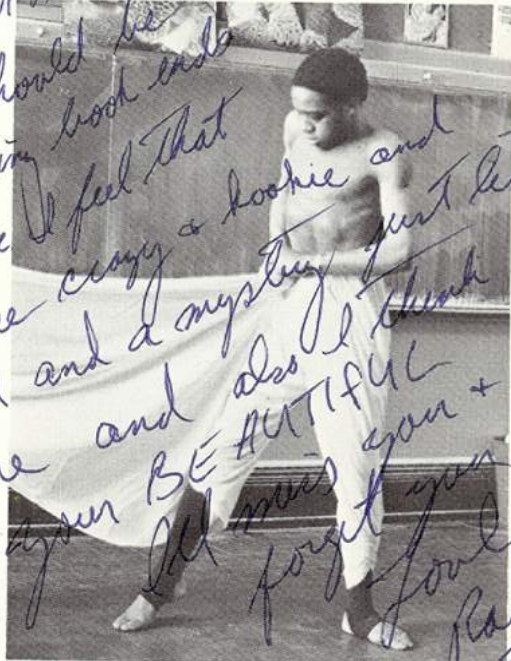 should be
book ends
I feel that
crazy & kookie and
and a mystery just
and also I think
your BEAUTIFUL
I'll miss you &
forget you
Love
Ra